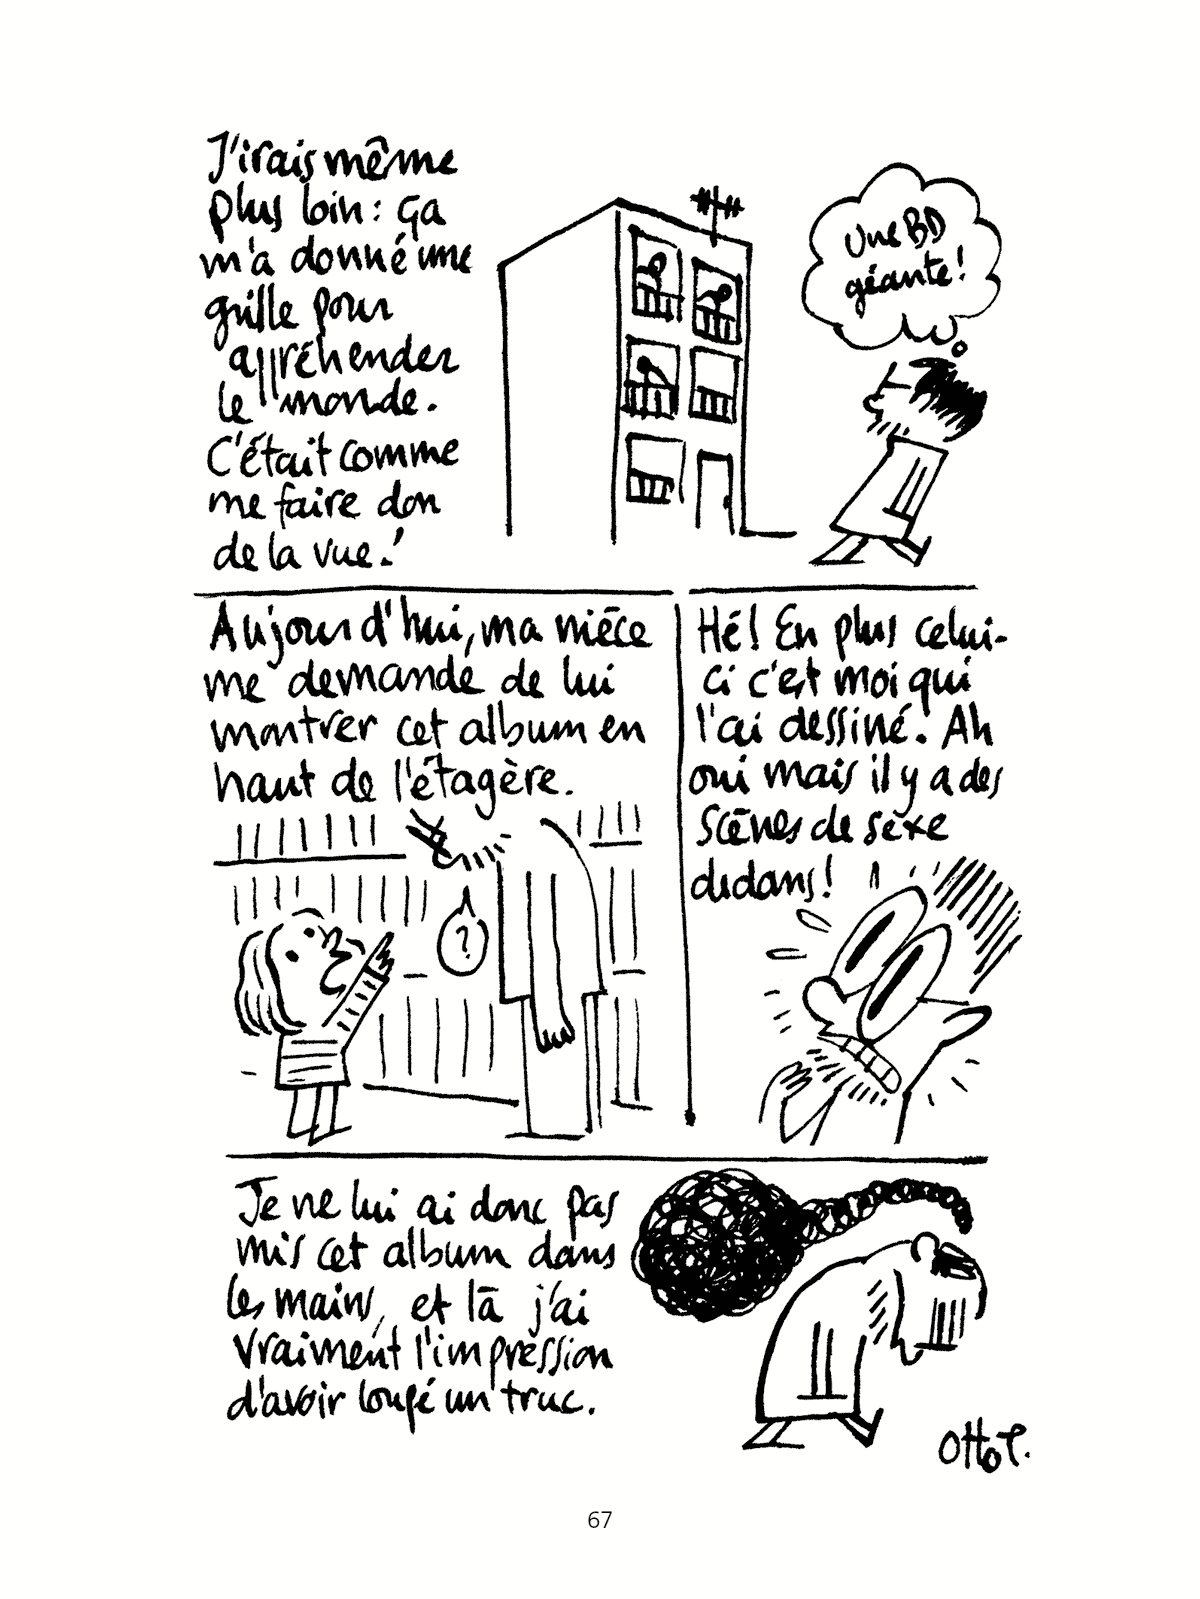 J'irais même
plus loin : ça
m'a donné une
grille pour
appréhender
le monde.
C'était comme
me faire don
de la vue !
Une BD
géante !
Aujourd'hui, ma nièce
me demande de lui
montrer cet album en
haut de l'étagère.
?
Hé ! En plus celui-
ci c'est moi qui
l'ai dessiné ! Ah
oui mais il y a des
scènes de sexe
dedans !
Je ne lui ai donc pas
mis cet album dans
les mains, et là j'ai
vraiment l'impression
d'avoir loupé un truc.
Otto T.
67